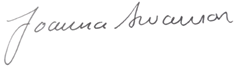 Joanna Swanson